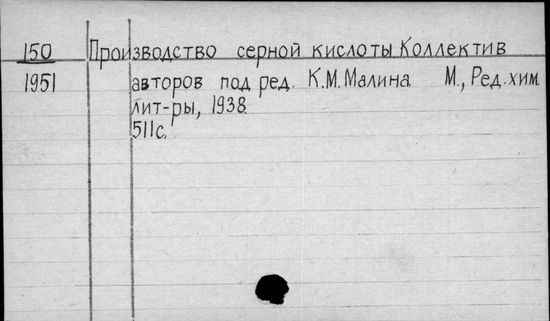 150 Производство серной кислоты. Коллектив
1951 авторов под ред. К.М. Малина М., Ред. хим.
лит-ры, 1938.
511с.